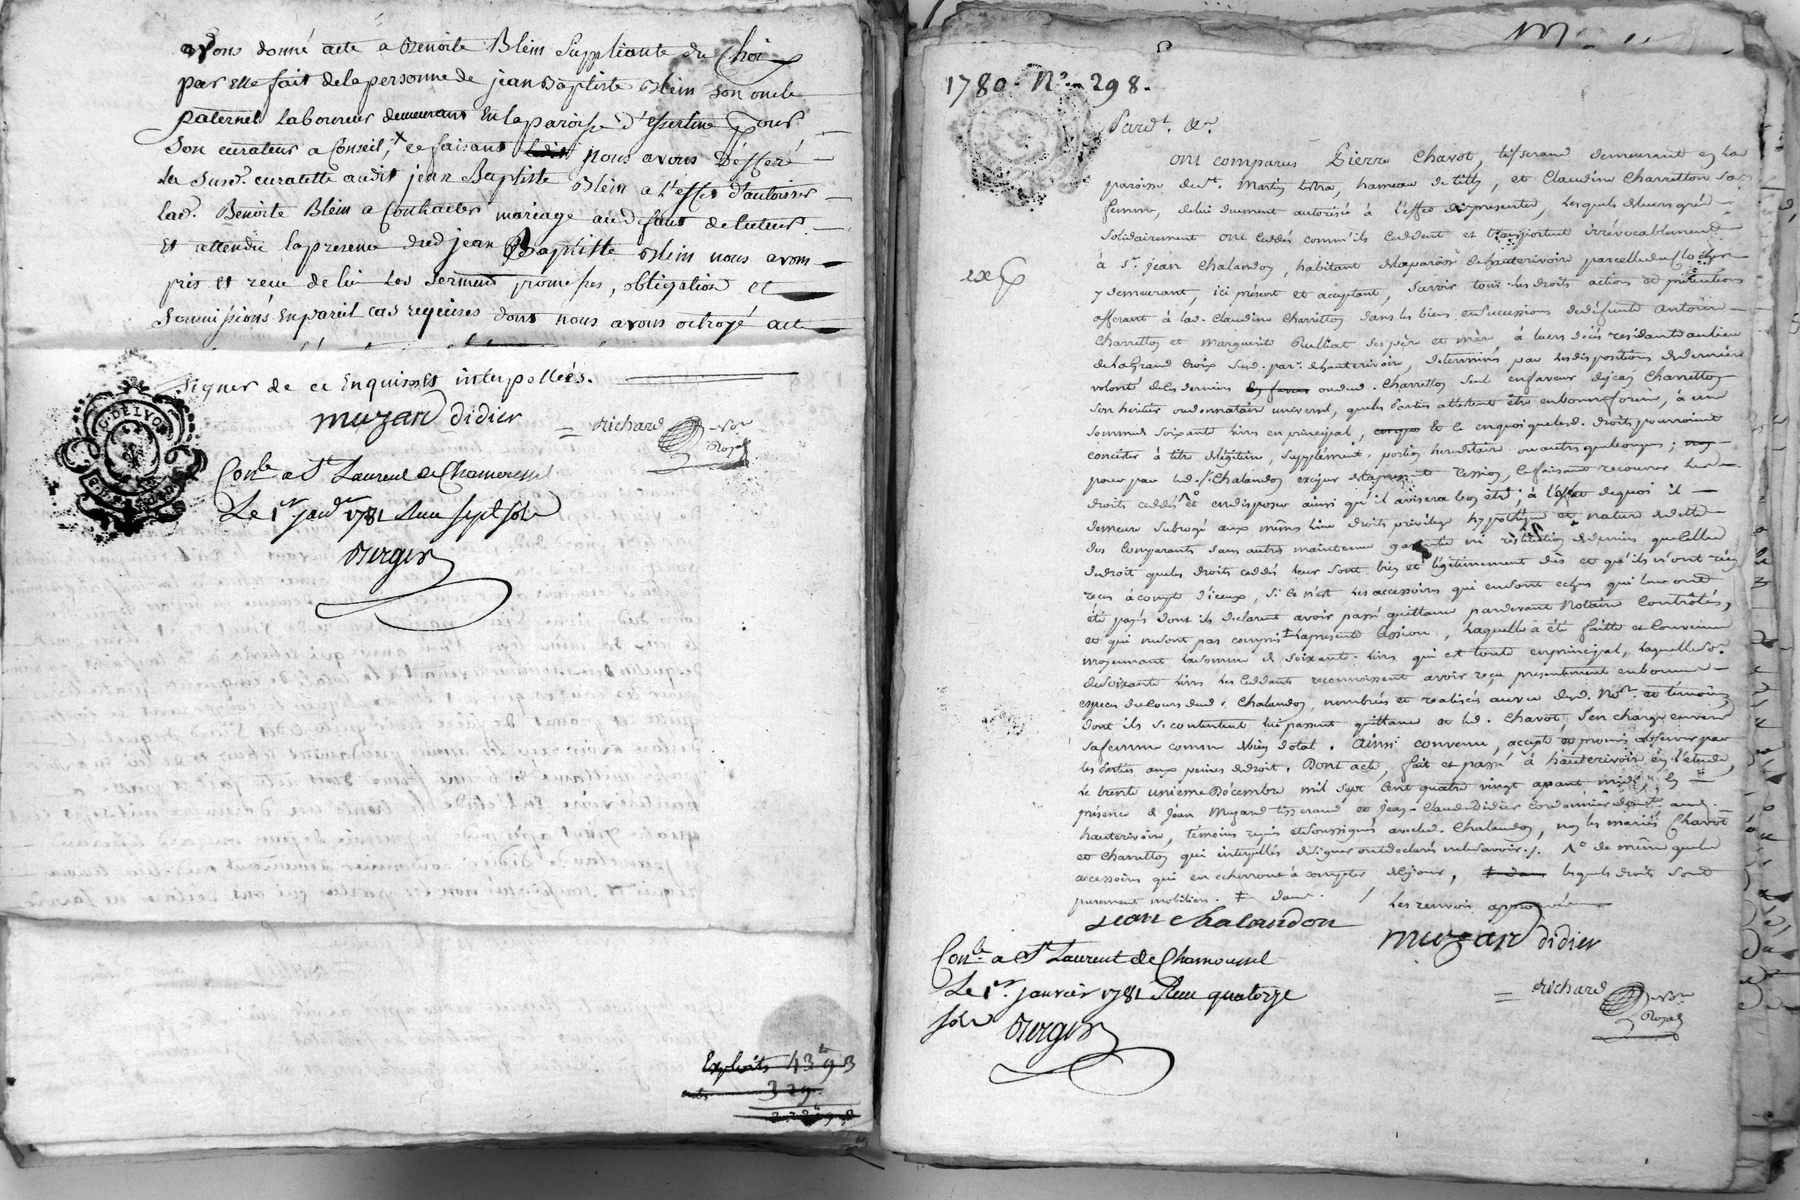 avons donné acte a Benoite Blein Suppliante du Choix
par elle fait de la personne de jean Baptiste Blein Son oncle
paternel laboureur demeurant En la paroisse d' pour
Son curateur a Conseil, ce faisant nous avons Défferé
la Susd. curatelle audit jean Baptiste Blein a l'effet d'autoriser
lad. Benoite Blein a Contracter mariage au defaut de tuteur.
Et attendu la presence dud jean Baptiste Blein nous avons
pris et recu de lui les Serment promesses, obligation et
Soumissions En pareil cas requises dont nous avons octroyé acte
signer de ce Enquis et interpellés.
muzard didier = Richard Nore Royal
G. DE LYON
Conlé a St Laurent de Chamousset
Le 1er janvr 1781 Recu sept sols
Berger
Exploits 43 9 3
329
1780. No. 298.
Pardt. &c.
ont comparus Pierre Chavot, tisserand demeurant en la
paroisse de St. Martin lestra, hameau de tilly, et Claudine Charretton sa
femme, de lui dument autorisée à l'effet des presentes, lesquels de leur gré
solidairement ont ceddés comm'ils ceddent et transportent irrévocablement
à Sr. jean Chalandon, habitant de la paroisse de hauterivoire parcelle du Clocher
y demeurant, ici présent et acceptant, savoir tous les droits actions et prétentions
exp
afferant à lad. Claudine Charretton dans les biens et successions de défunts antoine
Charretton et Marguerite Rulliat ses père et mère, à leurs décès residants au lieu
de la Grand Croix Susd. par. de hauterivoire, determinés par les dispositions de derniere
volonté de ces derniers ou dud. Charretton seul en faveur de jean Charretton
son heritier ou donnataire universel, quels parties attestent être en bonne forme, à une
somme de soixante livres en principal, et en quoi que lesd. droits pourroient
concister à titre de légitime, supplément, portion hereditaire ou autre quelconque;
pour par led. Sr. Chalandon exciper de la presente cession, se faisant recouvrer lesd.
droits ceddés et en disposer ainsi qu'il avisera bon être, à l'effet de quoi il
demeure subrogé aux mêmes lieu droits privilege hypotheque et nature de dette
des comparants sans autre maintenue garentie ni restitution de deniers que celle
de droit que les droits ceddés leur sont bien et légitimement dûs et qu'ils n'ont rien
recu à compte d'iceux, si ce n'est les accessoires qui en sont echus qui leur ont
été payés dont ils declarent avoir passé quittance pardevant Notaire Contrôlés,
et qui ne sont pas compris en la presente Cession, laquelle à été faitte et Convenue
moyennant la somme de soixante livres qui est toute en principal, laquelle so.
de soixante livres les Ceddants reconnoissent avoir reçu presentement en bonnes
especes du cours dud. Chalandon, nombrées et realisées au vu desd. Nore. et témoins,
dont ils se contentent lui passent quittance et led. Chavot s'en charge envers
sa femme comme bien dotal. Ainsi convenu, accepté et promis observer par
les parties aux peines de droit. Dont acte, fait et passé à hauterivoire en l'étude,
le trente unieme Décembre mil sept Cent quatre vingt avant midi, en
présence de Jean Muzard tisserand et Jean-Claude Didier cordonnier demt. aud.
hauterivoire, témoins requis et soussignés avec led. Chalandon, non les mariés Chavot
et Charretton qui interpellés de signer ont declarés ne le savoir. No de même que les
accessoires qui en echerront à compter de ce jour, lesquels droits sont
purement mobiliers. dans. les renvois approuvés
jean Chalandon muzard didier
Conlé a St Laurent de Chamousset
Le 1er. janvier 1781 Recu quatorze = Richard Nore Royal
sols Berger